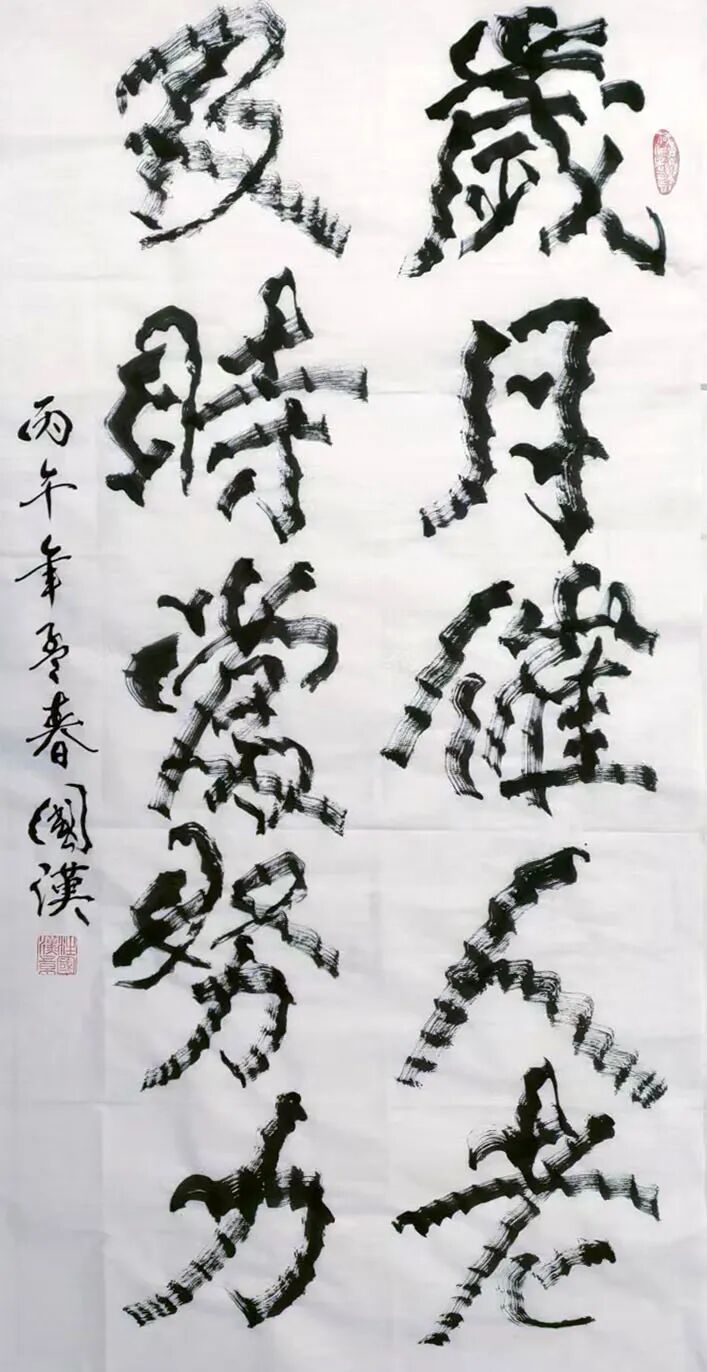 歲月催人老
及時當努力
丙午年孟春國漢